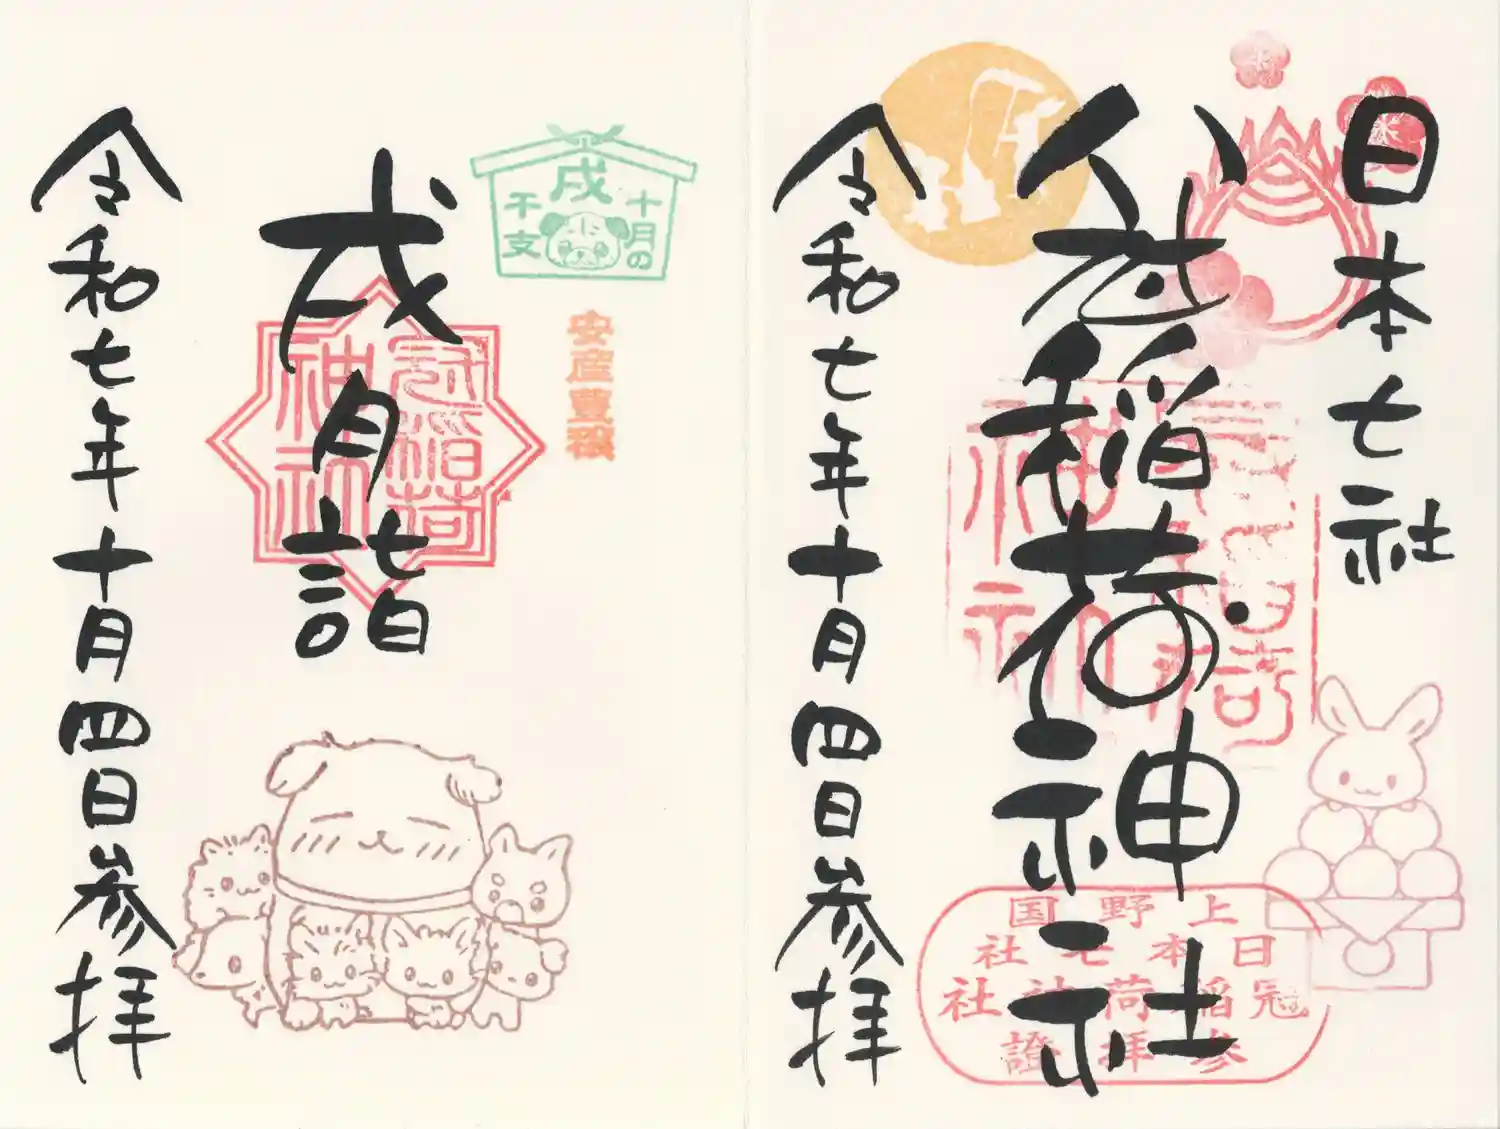 日本七社
冠稲荷神社
上野国
日本七社
冠稲荷神社
参拝證
令和七年十月四日参拝
十月の
戌
干支
安産豊穣
戌月詣
冠稲荷
神社
令和七年十月四日参拝